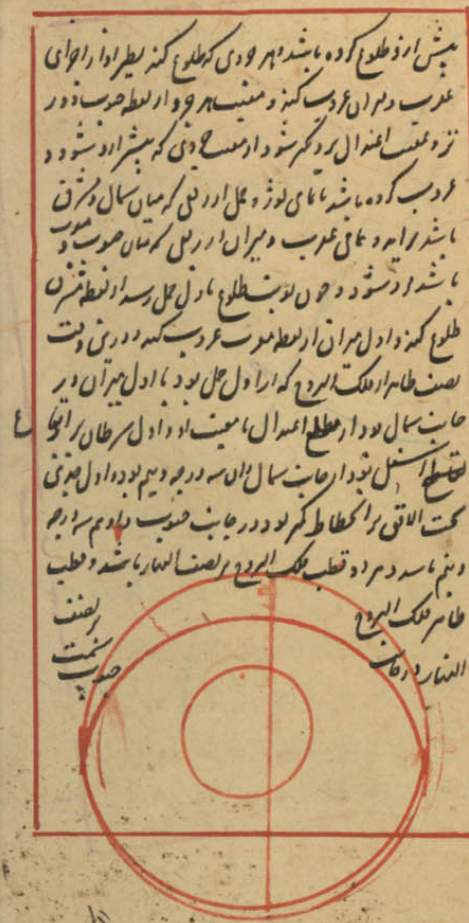 پیش ازو طلوع کرده باشد و هر جزوی که طلوع کند نظیر او از اجزای
عقرب و میزان غروب کند و مغیب هر جزو از نقطه جنوب دور
تر و بمغیب اعتدال نزدیکتر شود از مغیب جزوی که پیش ازو شود و
غروب کرده باشد تا تمامی ثور و حمل از ربعی که میان شمال و مشرق
باشد برآید و تمامی عقرب و میزان از ربعی که میان جنوب و مغرب
باشد فرو شود و چون نوبت طلوع باول حمل رسد از نقطه مشرق
طلوع کند و اول میزان از نقطه مغرب غروب کند و درین وقت
نصف ظاهر از فلک البروج که از اول حمل بود تا اول میزان در
جانب شمال بود از مطلع اعتدال تا مغیب او و اول سرطان بر
بود از جانب شمال سه درجه و نیم بود و اول جدی
تحت الافق بر انحطاط کمتر بود در جانب جنوب و آن هم سه درجه
و نیم باشد و هر دو قطب فلک البروج بر نصف النهار باشد و قطب
ظاهر فلک البروج بر نصف
النهار در جانب سمت جنوب